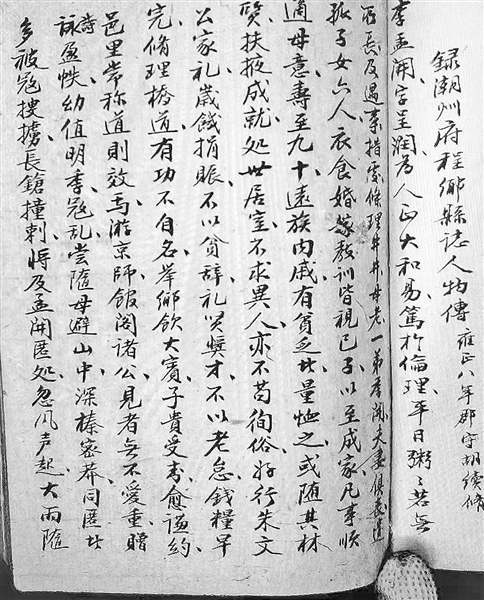 録潮州府程鄉縣誌人物傳 雍正八年郡守胡續修
李孟開字呈潤為人正大和易篤於倫理平日粥粥若無
所長及遇事措實條理井井母老一弟季開夫妻俱喪遺
孤子女六人衣食婚嫁教訓皆視己子以至成家凡事順
適母意壽至九十遠族內戚有貧乏者量恤之或隨其材
質扶掖成就処世居室不求異人亦不苟徇俗好行朱文
公家礼歲饑捐賑不以貧辞礼賢奬才不以老怠錢糧早
完脩理橋道有功不自名举鄉飲大賓子貴受封愈謹約
邑里常称道則效焉游京師館阁諸公見者無不愛重贈
詩詠盈帙幼值明季寇乱嘗隨母避山中深榛密莽同匿者
多被寇搜擄長鎗撞刺将及孟開匿処忽風声起大雨隨